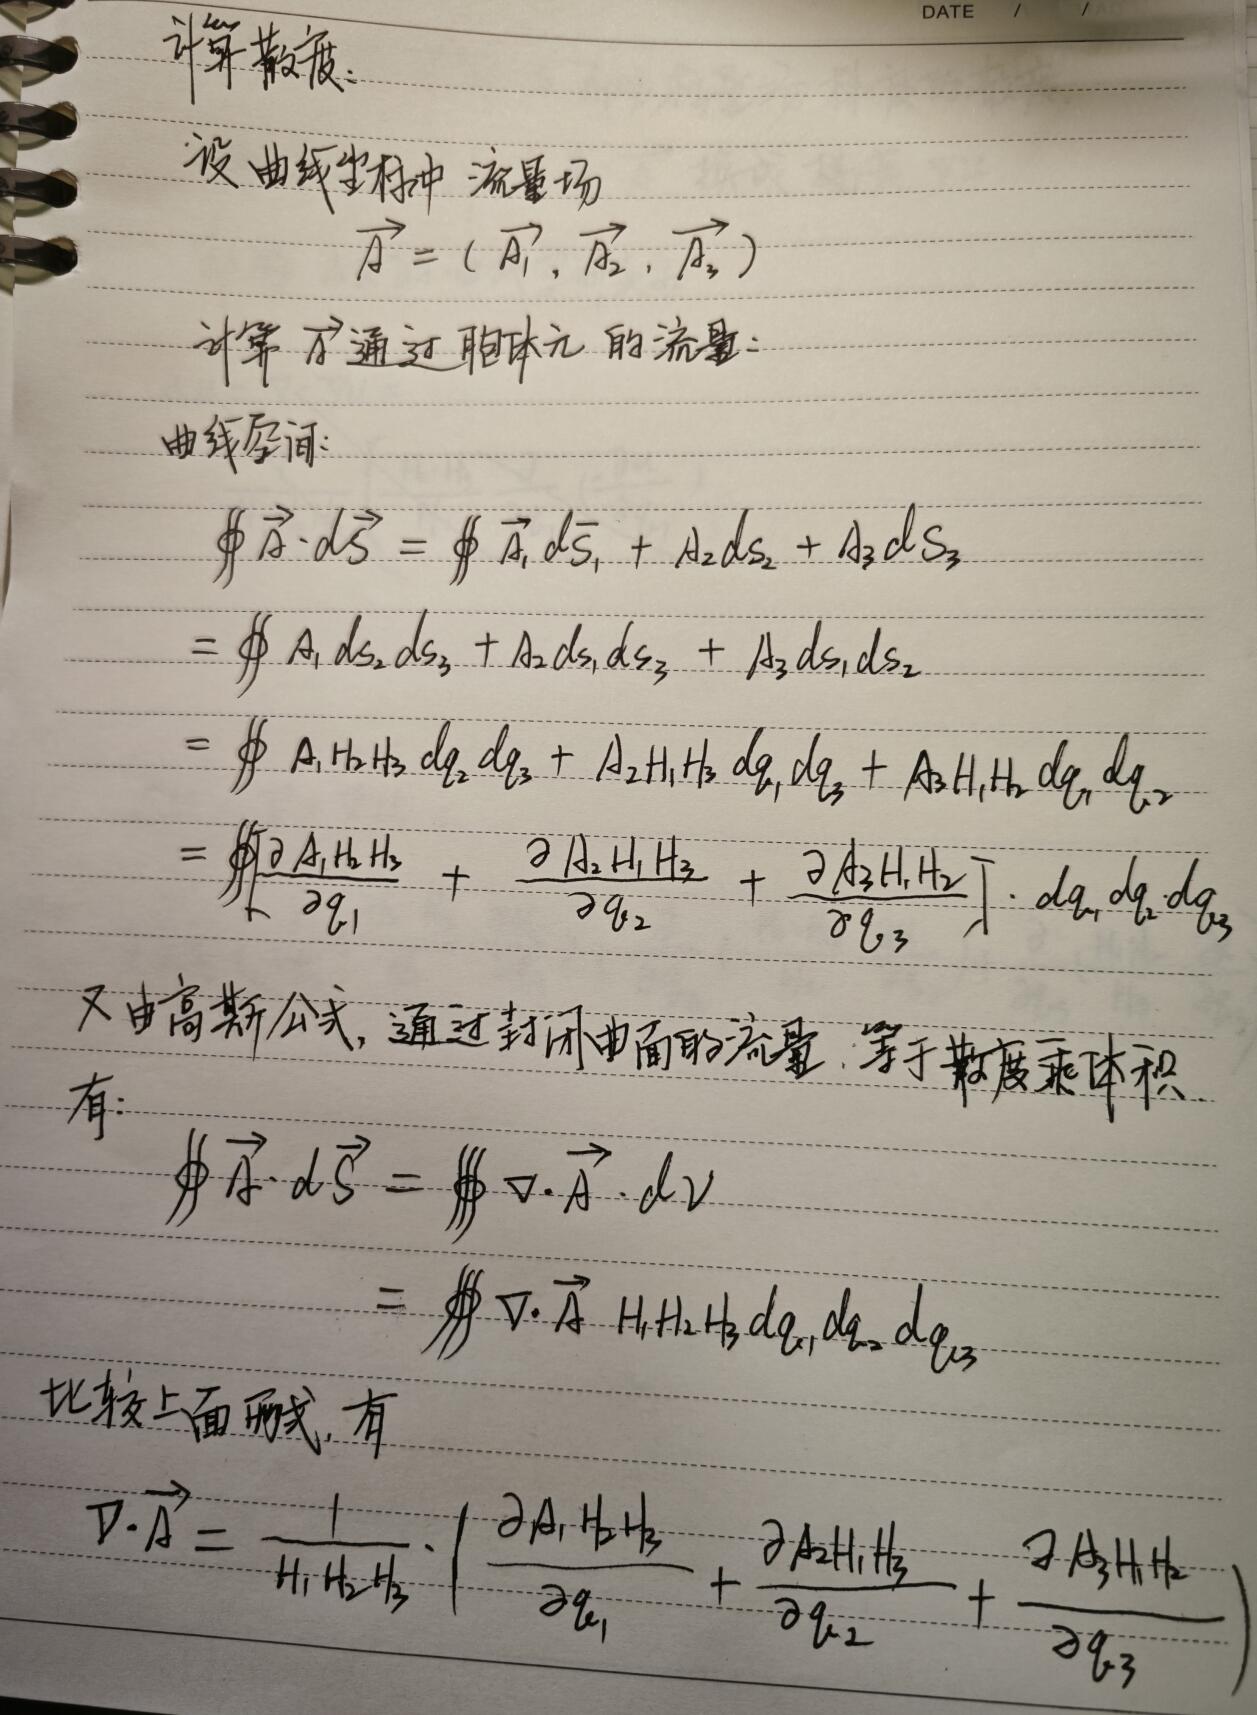 DATE / /
计算散度:
设曲线坐标中 流量场
A⃗ = ( A₁⃗, A₂⃗, A₃⃗ )
计算 A⃗ 通过胞体元的流量:
曲线空间:
∯ A⃗·dS⃗ = ∯ A⃗₁ dS̄₁ + A₂ dS₂ + A₃ dS₃
= ∯ A₁ ds₂ ds₃ + A₂ ds₁ ds₃ + A₃ ds₁ ds₂
= ∯ A₁H₂H₃ dq₂ dq₃ + A₂H₁H₃ dq₁ dq₃ + A₃H₁H₂ dq₁ dq₂
= ∯ [ ∂A₁H₂H₃/∂q₁ + ∂A₂H₁H₃/∂q₂ + ∂A₃H₁H₂/∂q₃ ] · dq₁ dq₂·dq₃
又由高斯公式, 通过封闭曲面的流量, 等于散度乘体积.
有:
∯ A⃗·dS⃗ = ∰ ∇·A⃗·dV
= ∰ ∇·A⃗ H₁H₂H₃ dq₁ dq₂ dq₃
比较上面两式, 有
∇·A⃗ = 1/(H₁H₂H₃) · ( ∂A₁H₂H₃/∂q₁ + ∂A₂H₁H₃/∂q₂ + ∂A₃H₁H₂/∂q₃ )